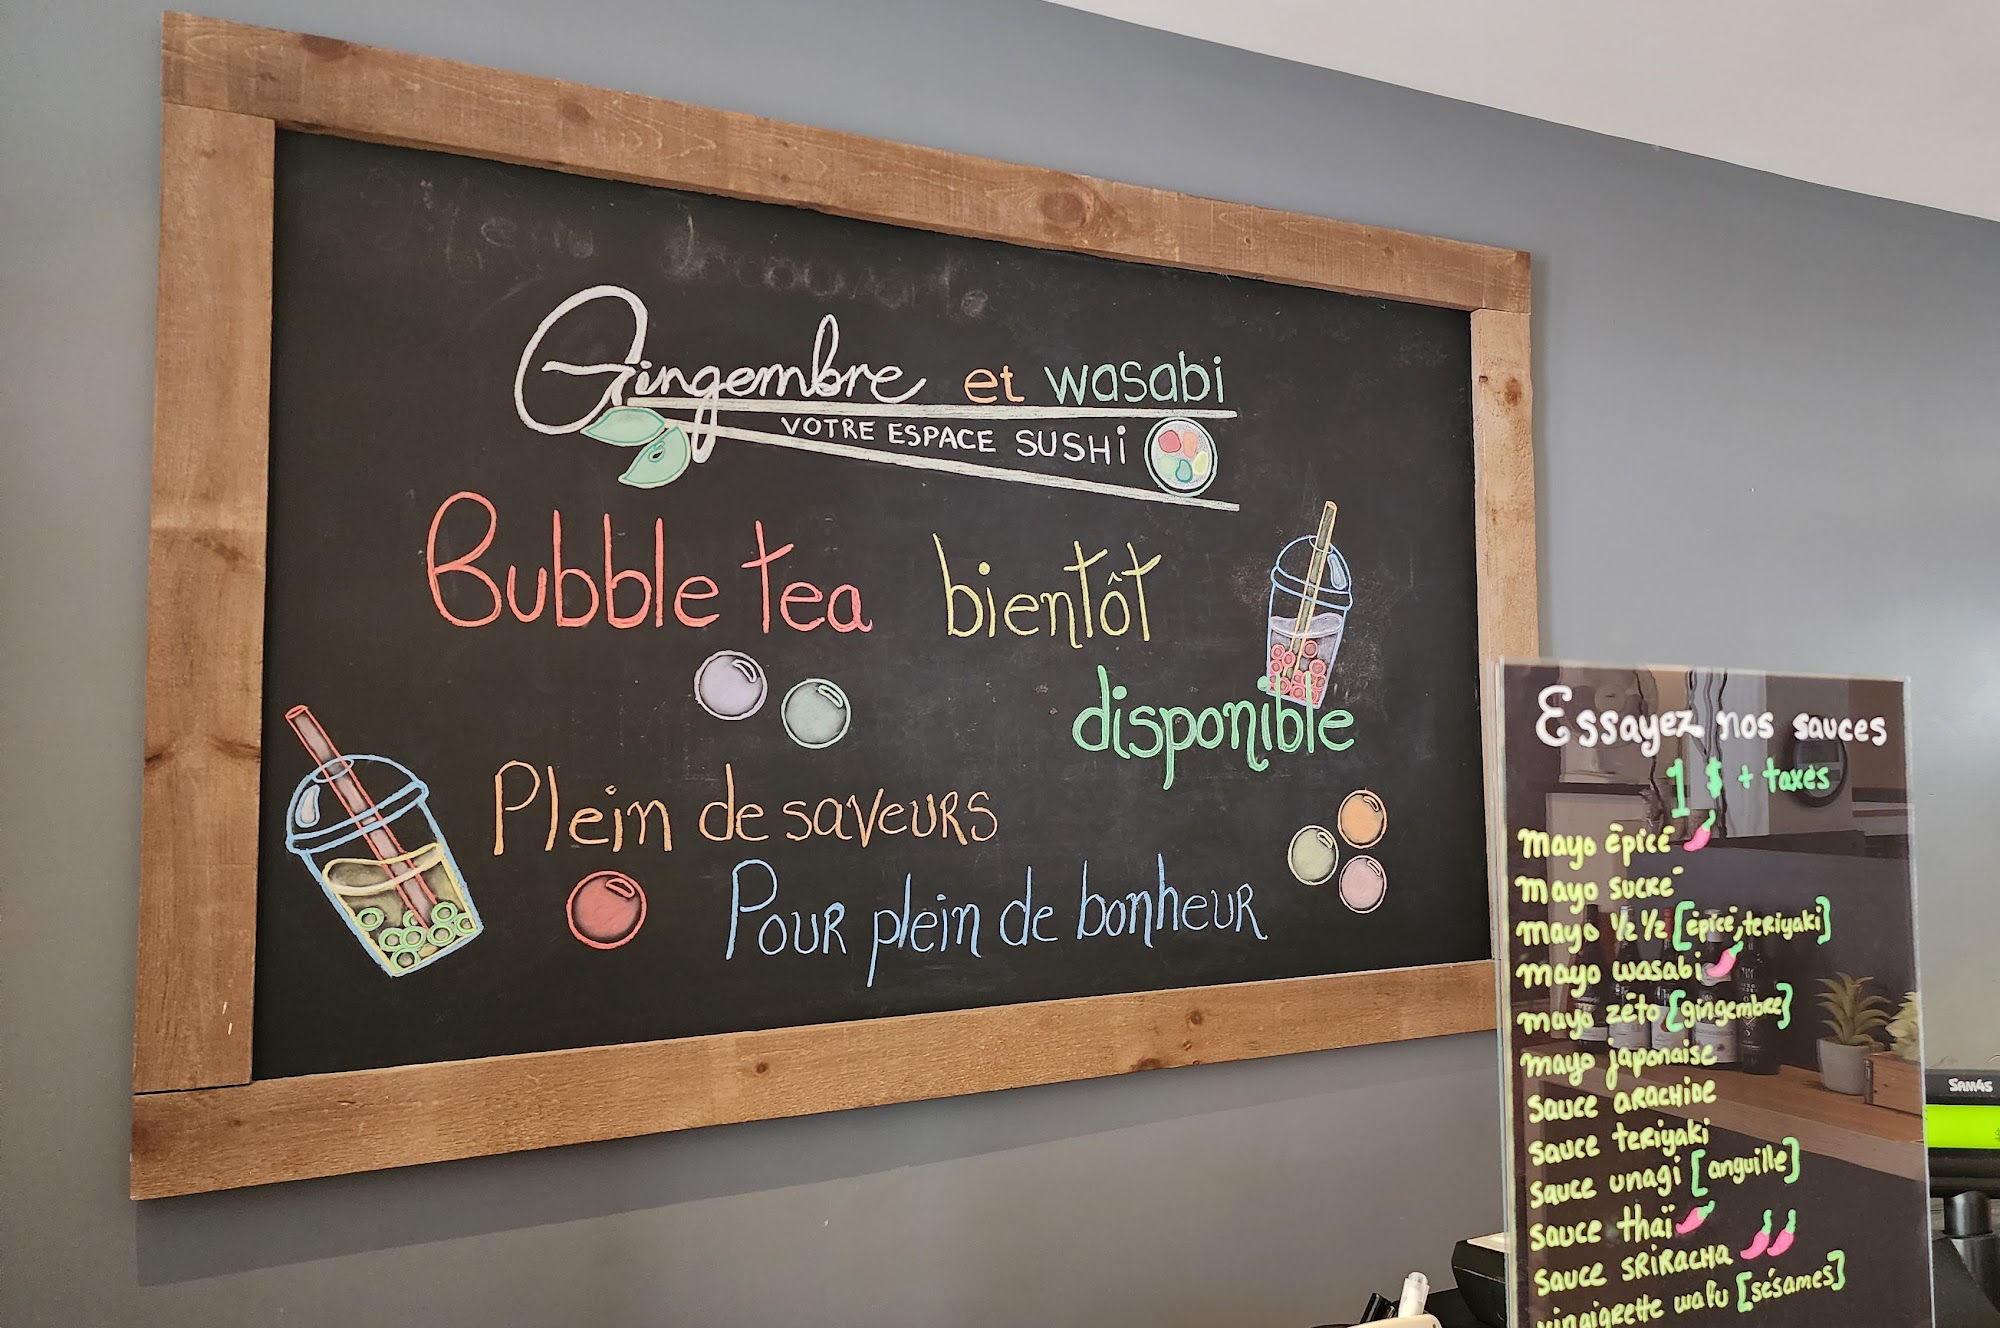 Gingembre et wasabi
VOTRE ESPACE SUSHi
Bubble tea bientôt
disponible
Plein de saveurs
Pour plein de bonheur
Essayez nos sauces
1 $ + taxes
mayo épicé
mayo sucré
mayo 1/2 1/2 [épicé, teriyaki]
mayo wasabi
mayo zéto [gingembre]
mayo japonaise
sauce ARACHIDE
sauce teriyaki
sauce unagi [anguille]
sauce thaï
sauce SRIRACHA
vinaigrette wafu [sésames]
SAM4S